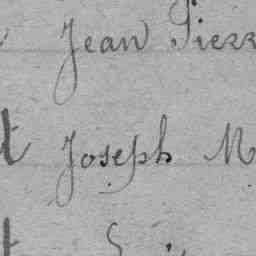 Jean Pierr
t Joseph M
t